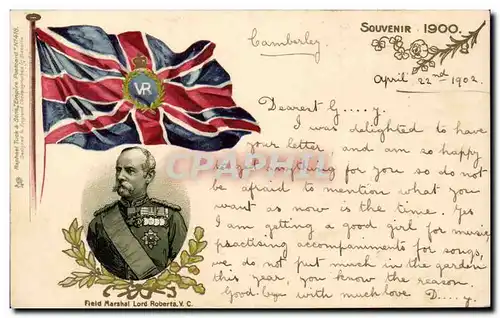 Raphael Tuck & Sons "Empire" Postcard
SOUVENIR 1900.
Camberley
April 22nd 1902.
Dearest G....y.
I was delighted to have
your letter and am so happy
if I anything for you so do not
be afraid to mention what you
want as now is the time. Yes
I am getting a good girl for music,
practising accompaniments for songs,
we do not put much in the garden
this year, you know the reason.
Good-bye with much love D....y.
VR
CPARAMA
Field Marshal Lord Roberts. V. C.